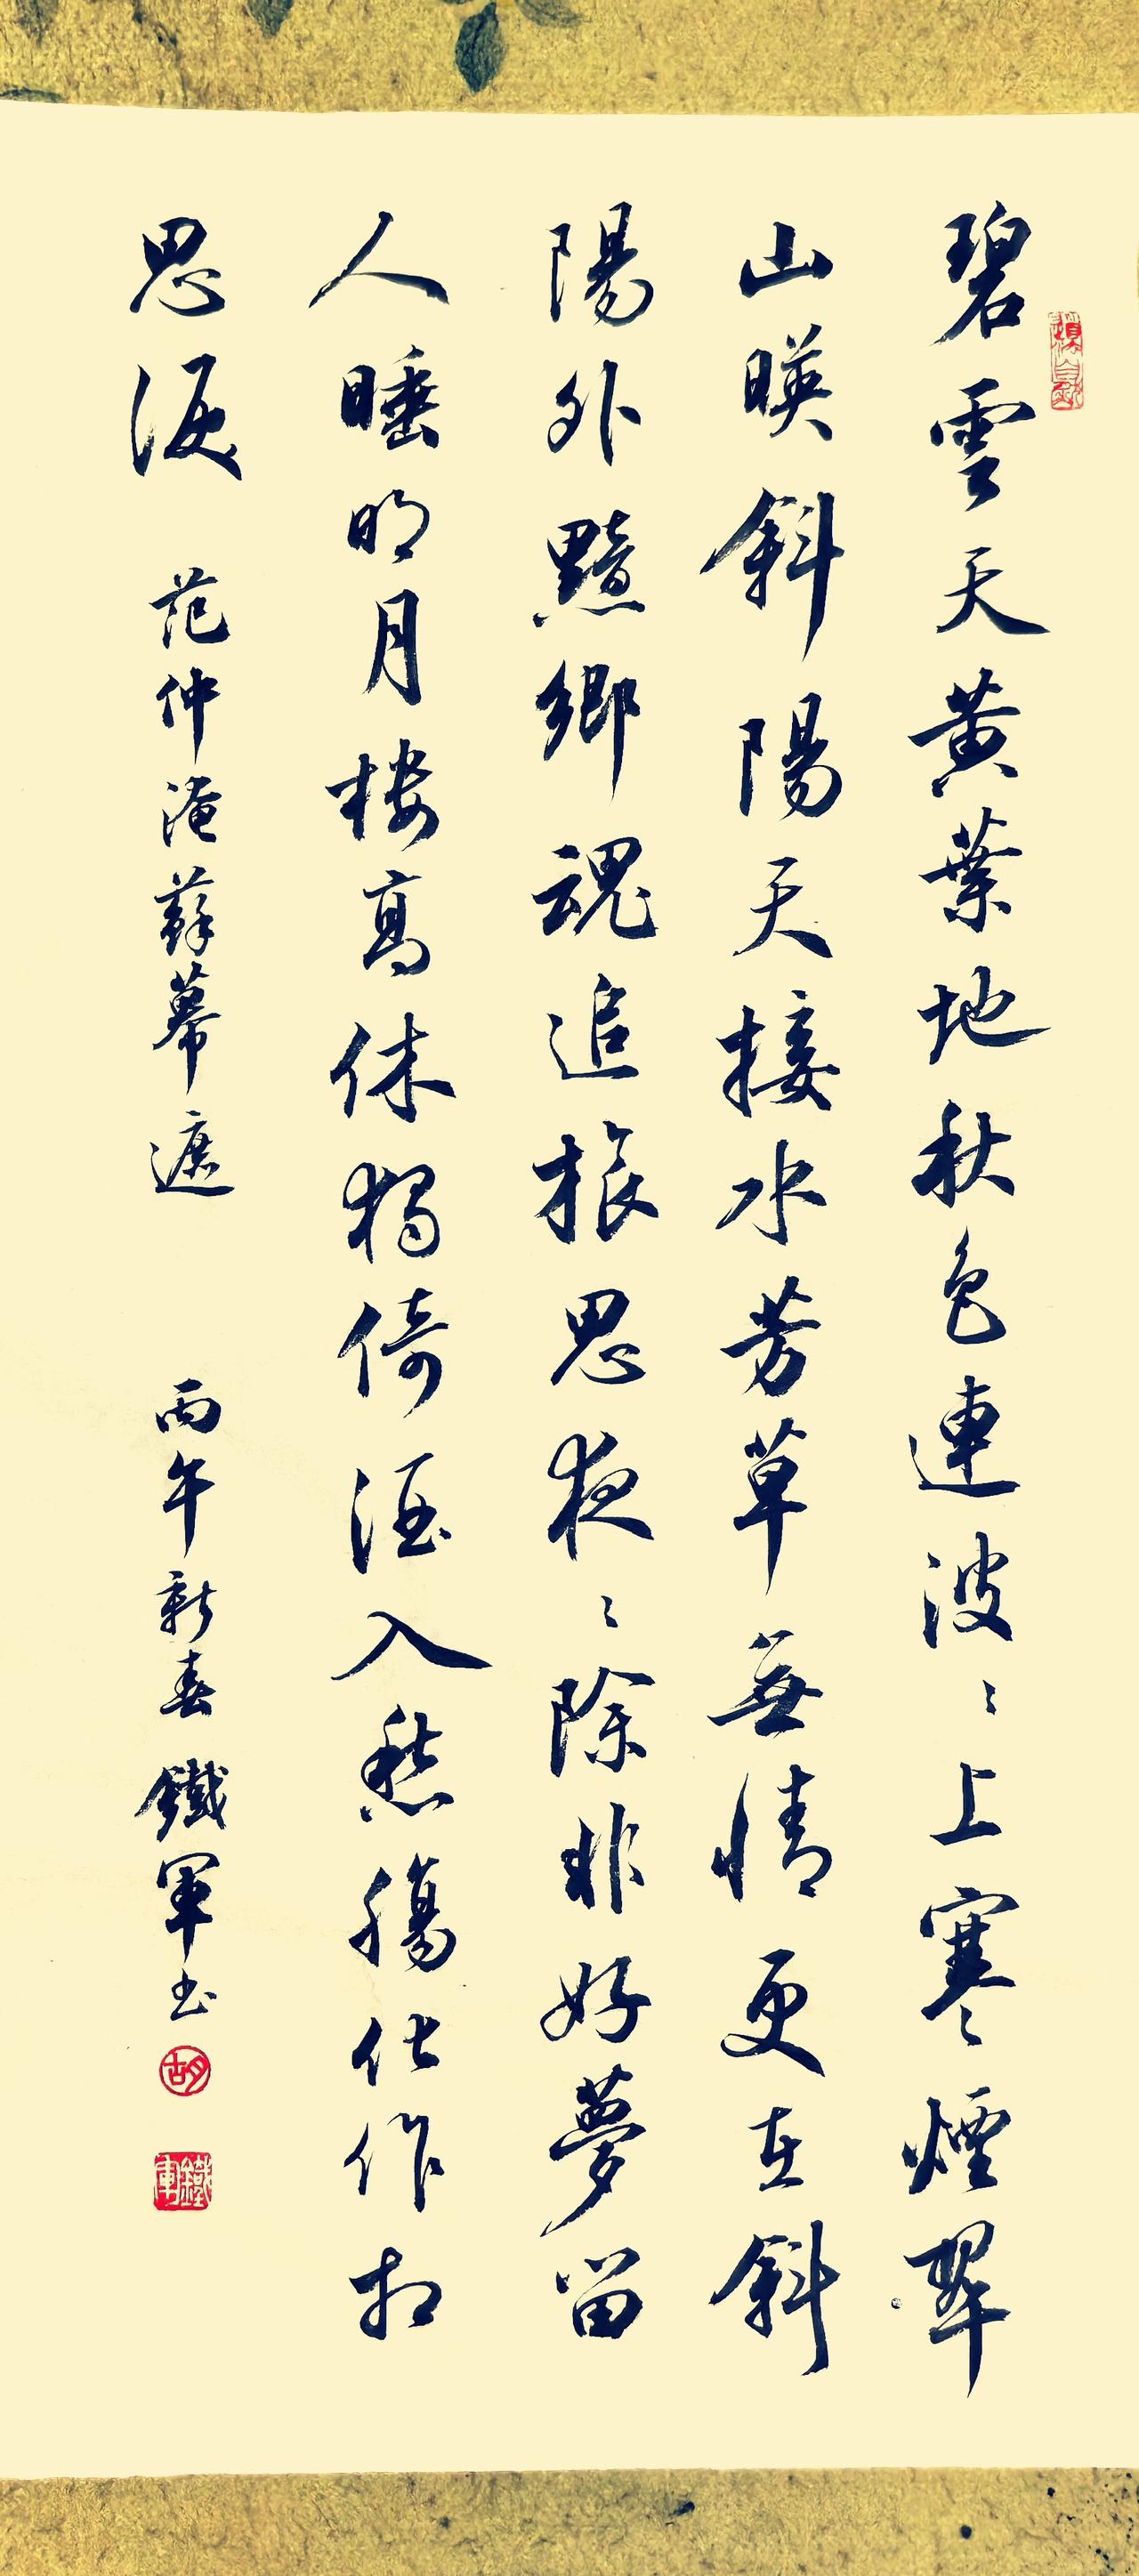 碧雲天黃葉地秋色連波〻上寒煙翠
山暎斜陽天接水芳草無情更在斜
陽外黯鄉魂追旅思夜〻除非好夢留
人睡明月樓高休獨倚酒入愁腸化作相
思淚 范仲淹蘇幕遮 丙午新春 鐵軍書
胡
鐵軍